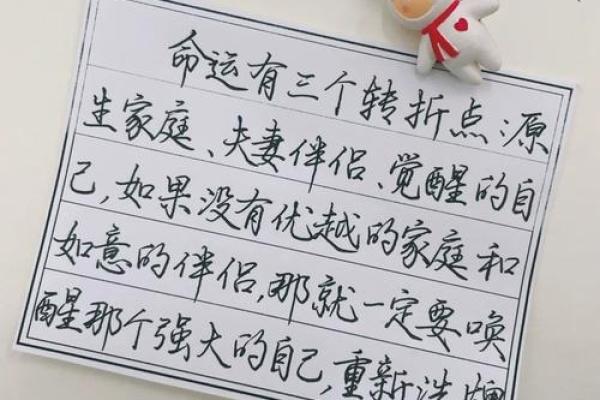 命运有三个转折点:源
生家庭、夫妻伴侣、觉醒的自
己,如果没有优越的家庭和
如意的伴侣,那就一定要唤
醒那个强大的自己,重新洗牌